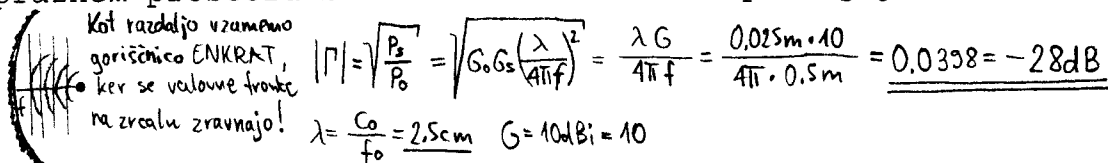 Kot razdaljo vzamemo
goriščnico ENKRAT,
ker se valovne fronte
na zrcalu zravnajo!
f
|Γ| = √(Ps/Po) = √(Go Gs (λ/4πf)²) = λG/4πf = 0,025m·10/4π·0.5m = 0.0398 = -28dB
λ = Co/fo = 2.5cm G = 10dBi = 10